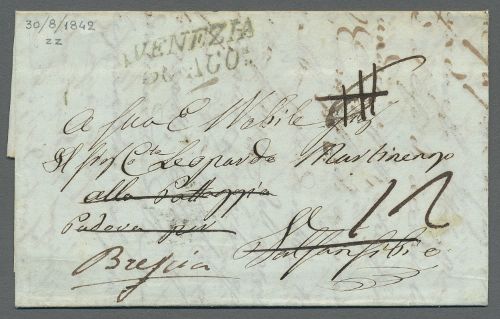 30/8/1842
zz
VENEZIA
30 AGO
A Sua E Nobile
Il Sig Cte Leopardo Martinengo
alla Battaggia
Padova per
Brescia
12